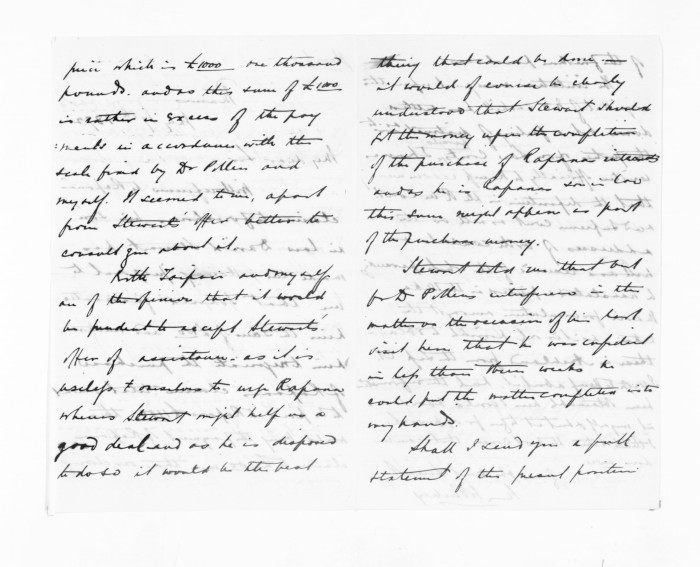 price which is £1000 one thousand
pounds. and as this sum of £1000
is rather in excess of the pay
:ments in accordance with the
scale fixed by Dr Pollen and
myself. It seemed to me, apart
from Stewart's offer better to
consult you about it.
Both Taipari and myself
are of the opinion that it would
be prudent to accept Stewarts'
offer of assistance. as it is
useless to ourselves to urge Rapana
whereas Stewart might help us a
good deal and as he is disposed
to do so it would be the best
thing that could be done. —
it would of course be clearly
understood that Stewart should
get the money upon the completion
of the purchase of Rapana interests
and as he is Rapanas son in law
this sum might appear as part
of the purchase money.
Stewart told me that but
for Dr Pollens interference in the
matter on the occasion of his last
visit here that he was confident
in less than three weeks he
could put the matter completed into
my hands.
Shall I send you a full
statement of the present position